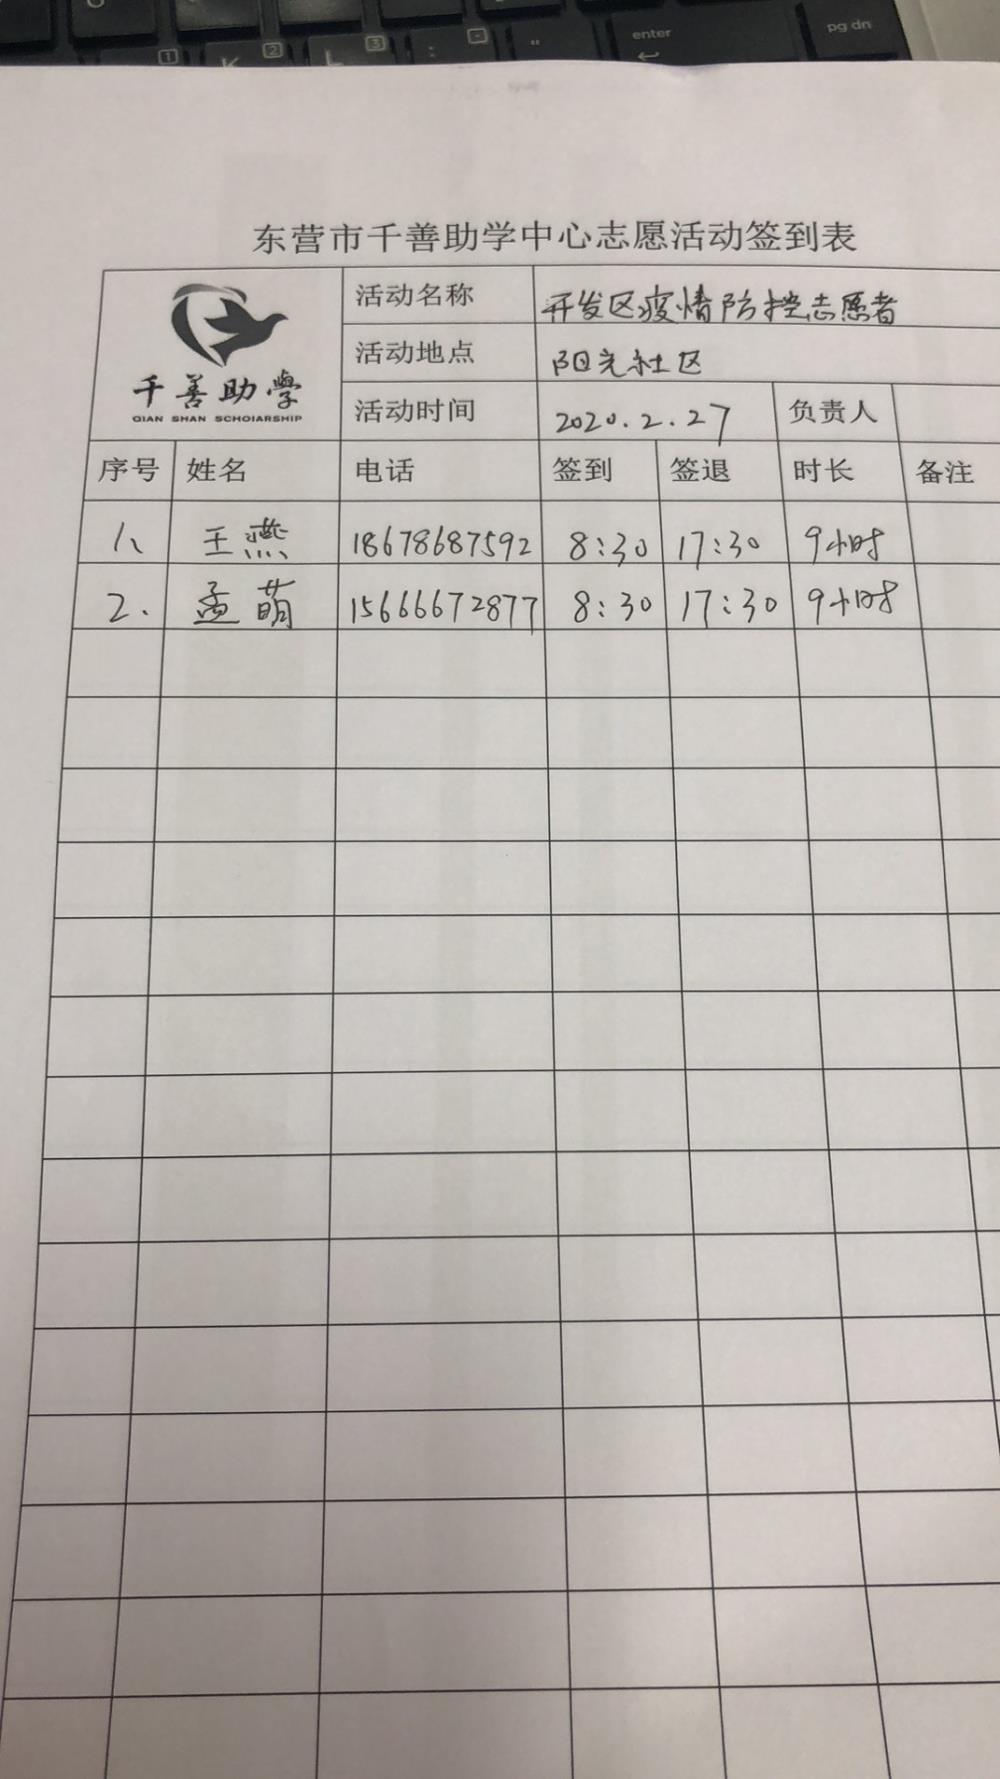 enter
pg dn
东营市千善助学中心志愿活动签到表
千善助學
QIAN SHAN SCHOIARSHIP
活动名称 开发区疫情防控志愿者
活动地点 阳光社区
活动时间 2020.2.27 负责人
序号 姓名 电话 签到 签退 时长 备注
1、 王燕 18678687592 8:30 17:30 9小时
2. 孟萌 15666672877 8:30 17:30 9小时